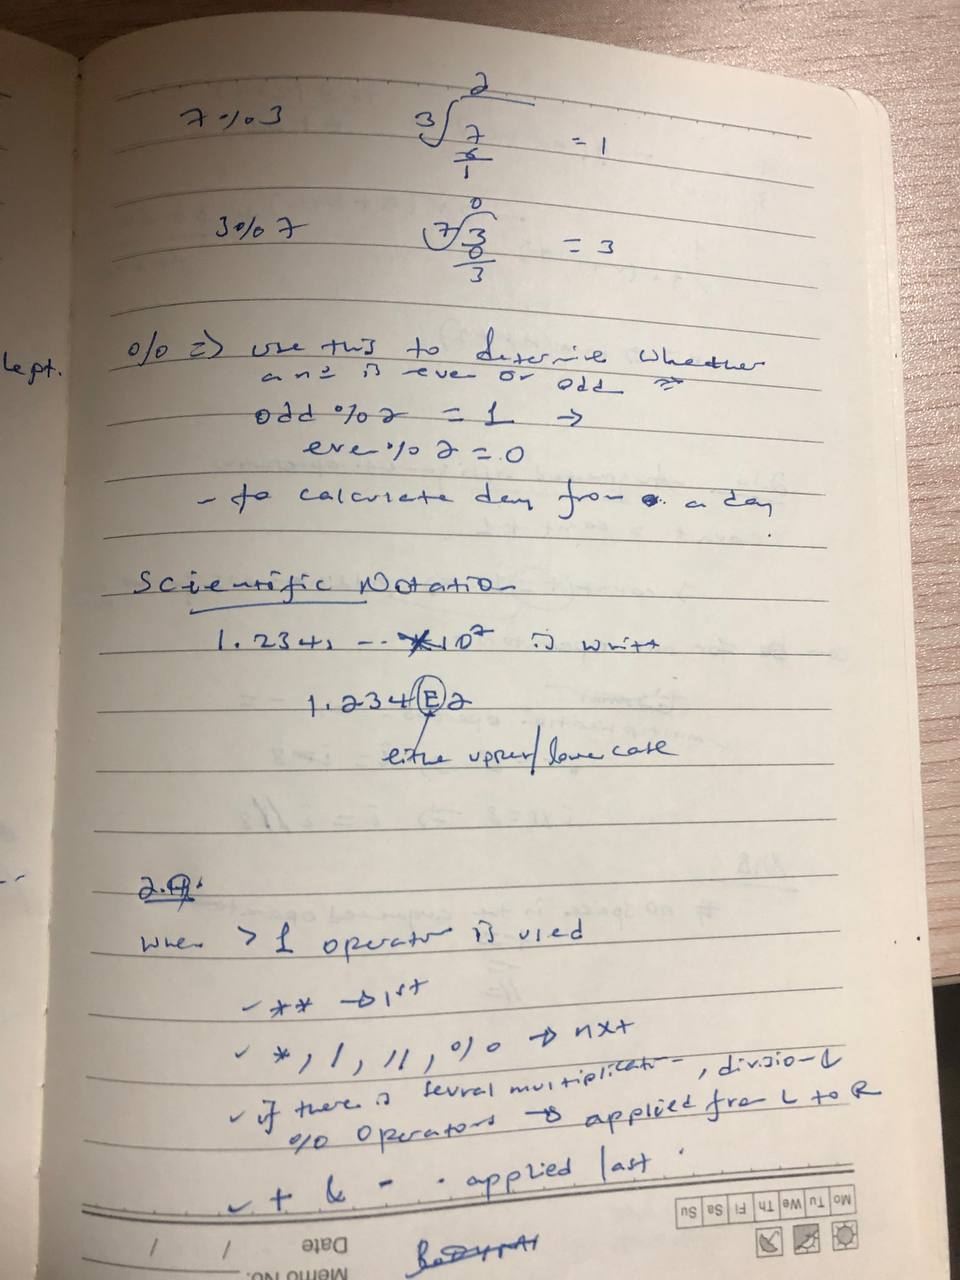 7 % 3
2
3
7
6
1
= 1
3 % 7
0
7
3
0
3
= 3
lept.
% => use this to determine whether
a n= is even or odd
odd % 2 = 1 →
even % 2 = 0
- to calculate day from a day
Scientific Notation
1.234, -- × 10² is writt
1.234 E 2
either upper/lower case
2.
When > 1 operator is used
✓ ** → 1st
✓ *, /, //, % → nxt
✓ if there is sevral multiplication, division &
% operators → applied from L to R
✓ + & - . applied last
Mo Tu We Th Fi Sa Su
Date / /
Memo No.